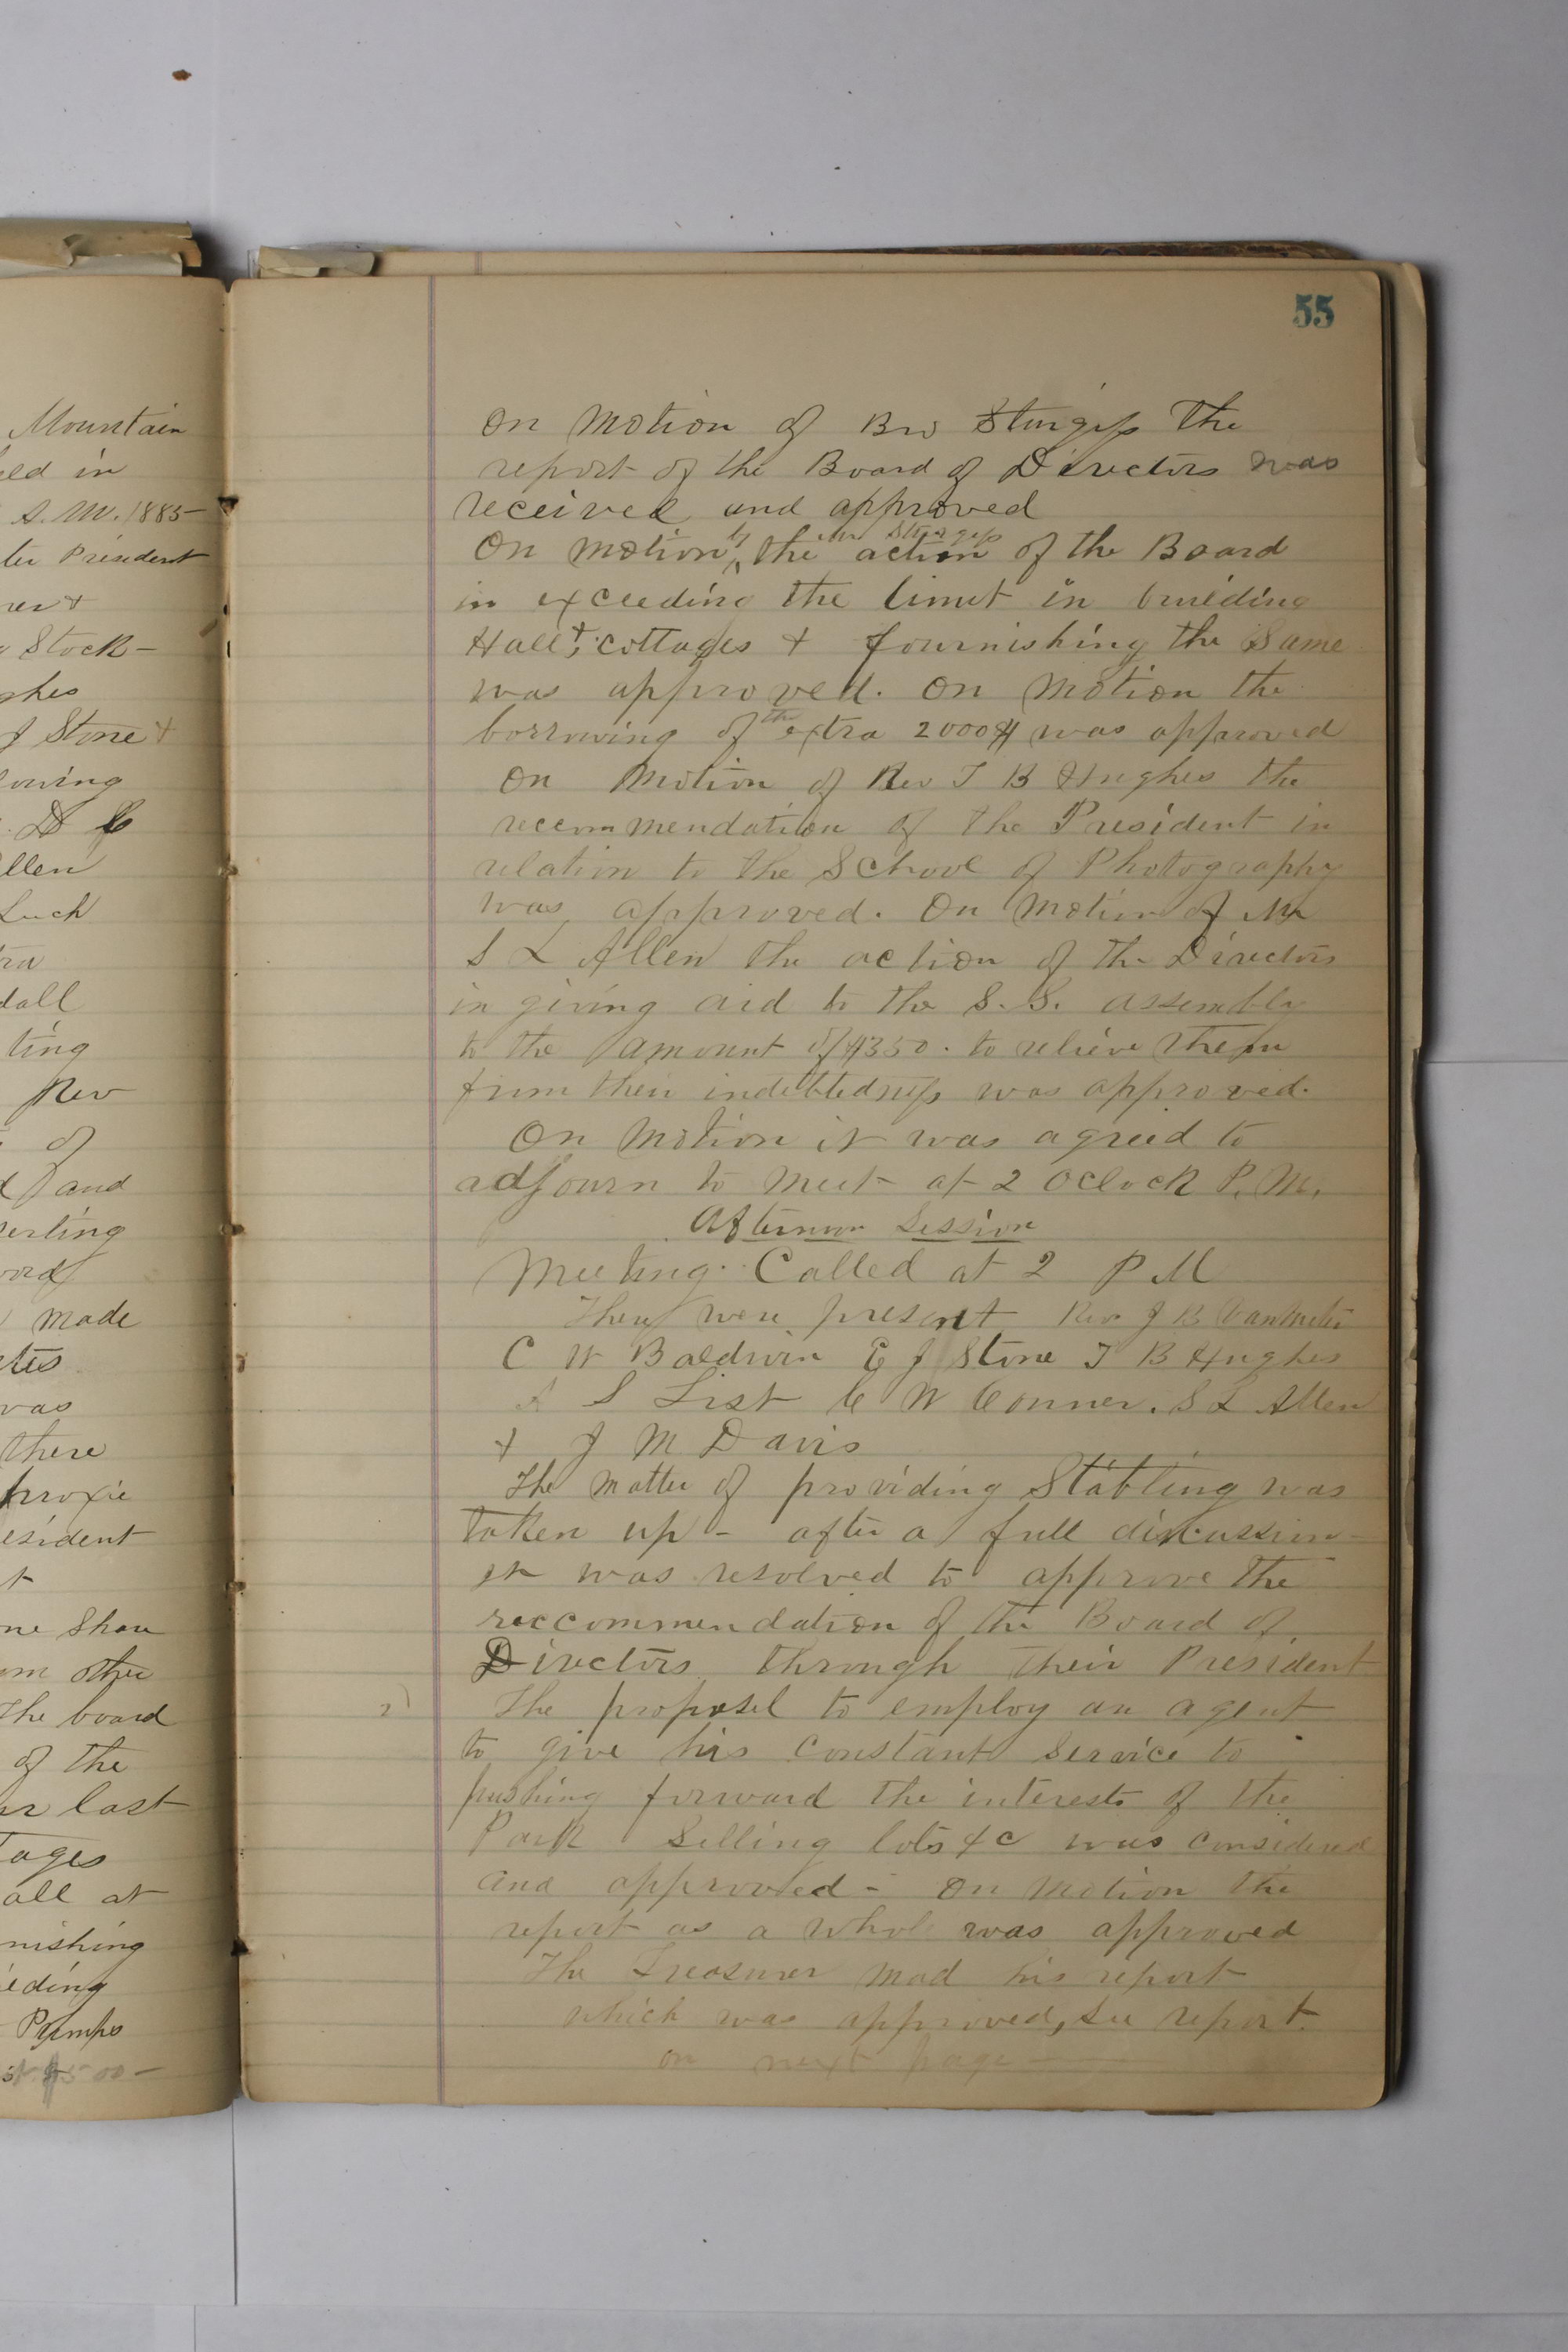 55
Mountain
ld in
A.M. 1885
ter President
Stock-
ghes
J Stone +
lowing
D C
llen
Luch
dall
ting
Rev
of
and
serling
made
was
there
proxie
esident
ne Share
om other
The board
of the
ur last
tages
all at
nishing
ilding
Pumps
On Motion of Bro Sturgiss The
report of the Board of Directors was
received and approved
by Mr Sturgiss
On motion ^ the action of the Board
in exceeding the limit in building
Hall, + cottages + fournishing the Same
was approved. On Motion the
borrowing of the extra 2000$ was approved
On Motion of Rev T B Hughes the
recommendation of the President in
relation to the School of Photography
was approved. On Motion of Mr
S L Allen the action of the Directors
in giving aid to the S.S. assembly
to the amount of $350. to relieve them
from their indebtedness was approved.
On Motion it was agreed to
adjourn to meet at 2 Oclock P.M.
Afternoon Session
Meeting Called at 2 P M
There were present Rev J B VanMeter
C W Baldwin E J Stone T B Hughes
A S List C W Conner. S L Allen
+ J M Davis
The matter of providing Stabling was
taken up - after a full discussion
it was resolved to approve the
reccommendation of the Board of
Directors through their President
2) The proposel to employ an agent
to give his constant service to
pushing forward the interests of the
Park Selling lots &c was considered
and approved - On motion the
report as a whole was approved
The Treasurer mad his report
which was approved, see report.
on next page